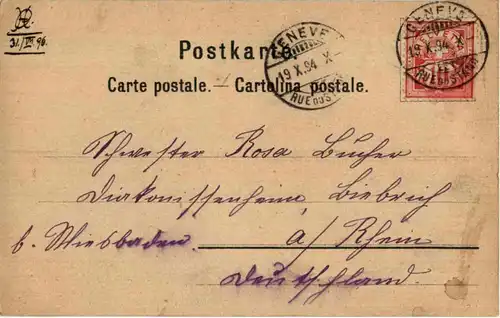 31/VIII 96.
Postkarte.
Carte postale. — Cartolina postale.
GENÈVE
19 X.94 X
RUE DU STAND
GENÈVE
19 X.94 X
RUE DU STAND
Schwester Rosa Bucher
Diakonissenheim, Biebrich
b. Wiesbaden. a/ Rhein
Deutschland.